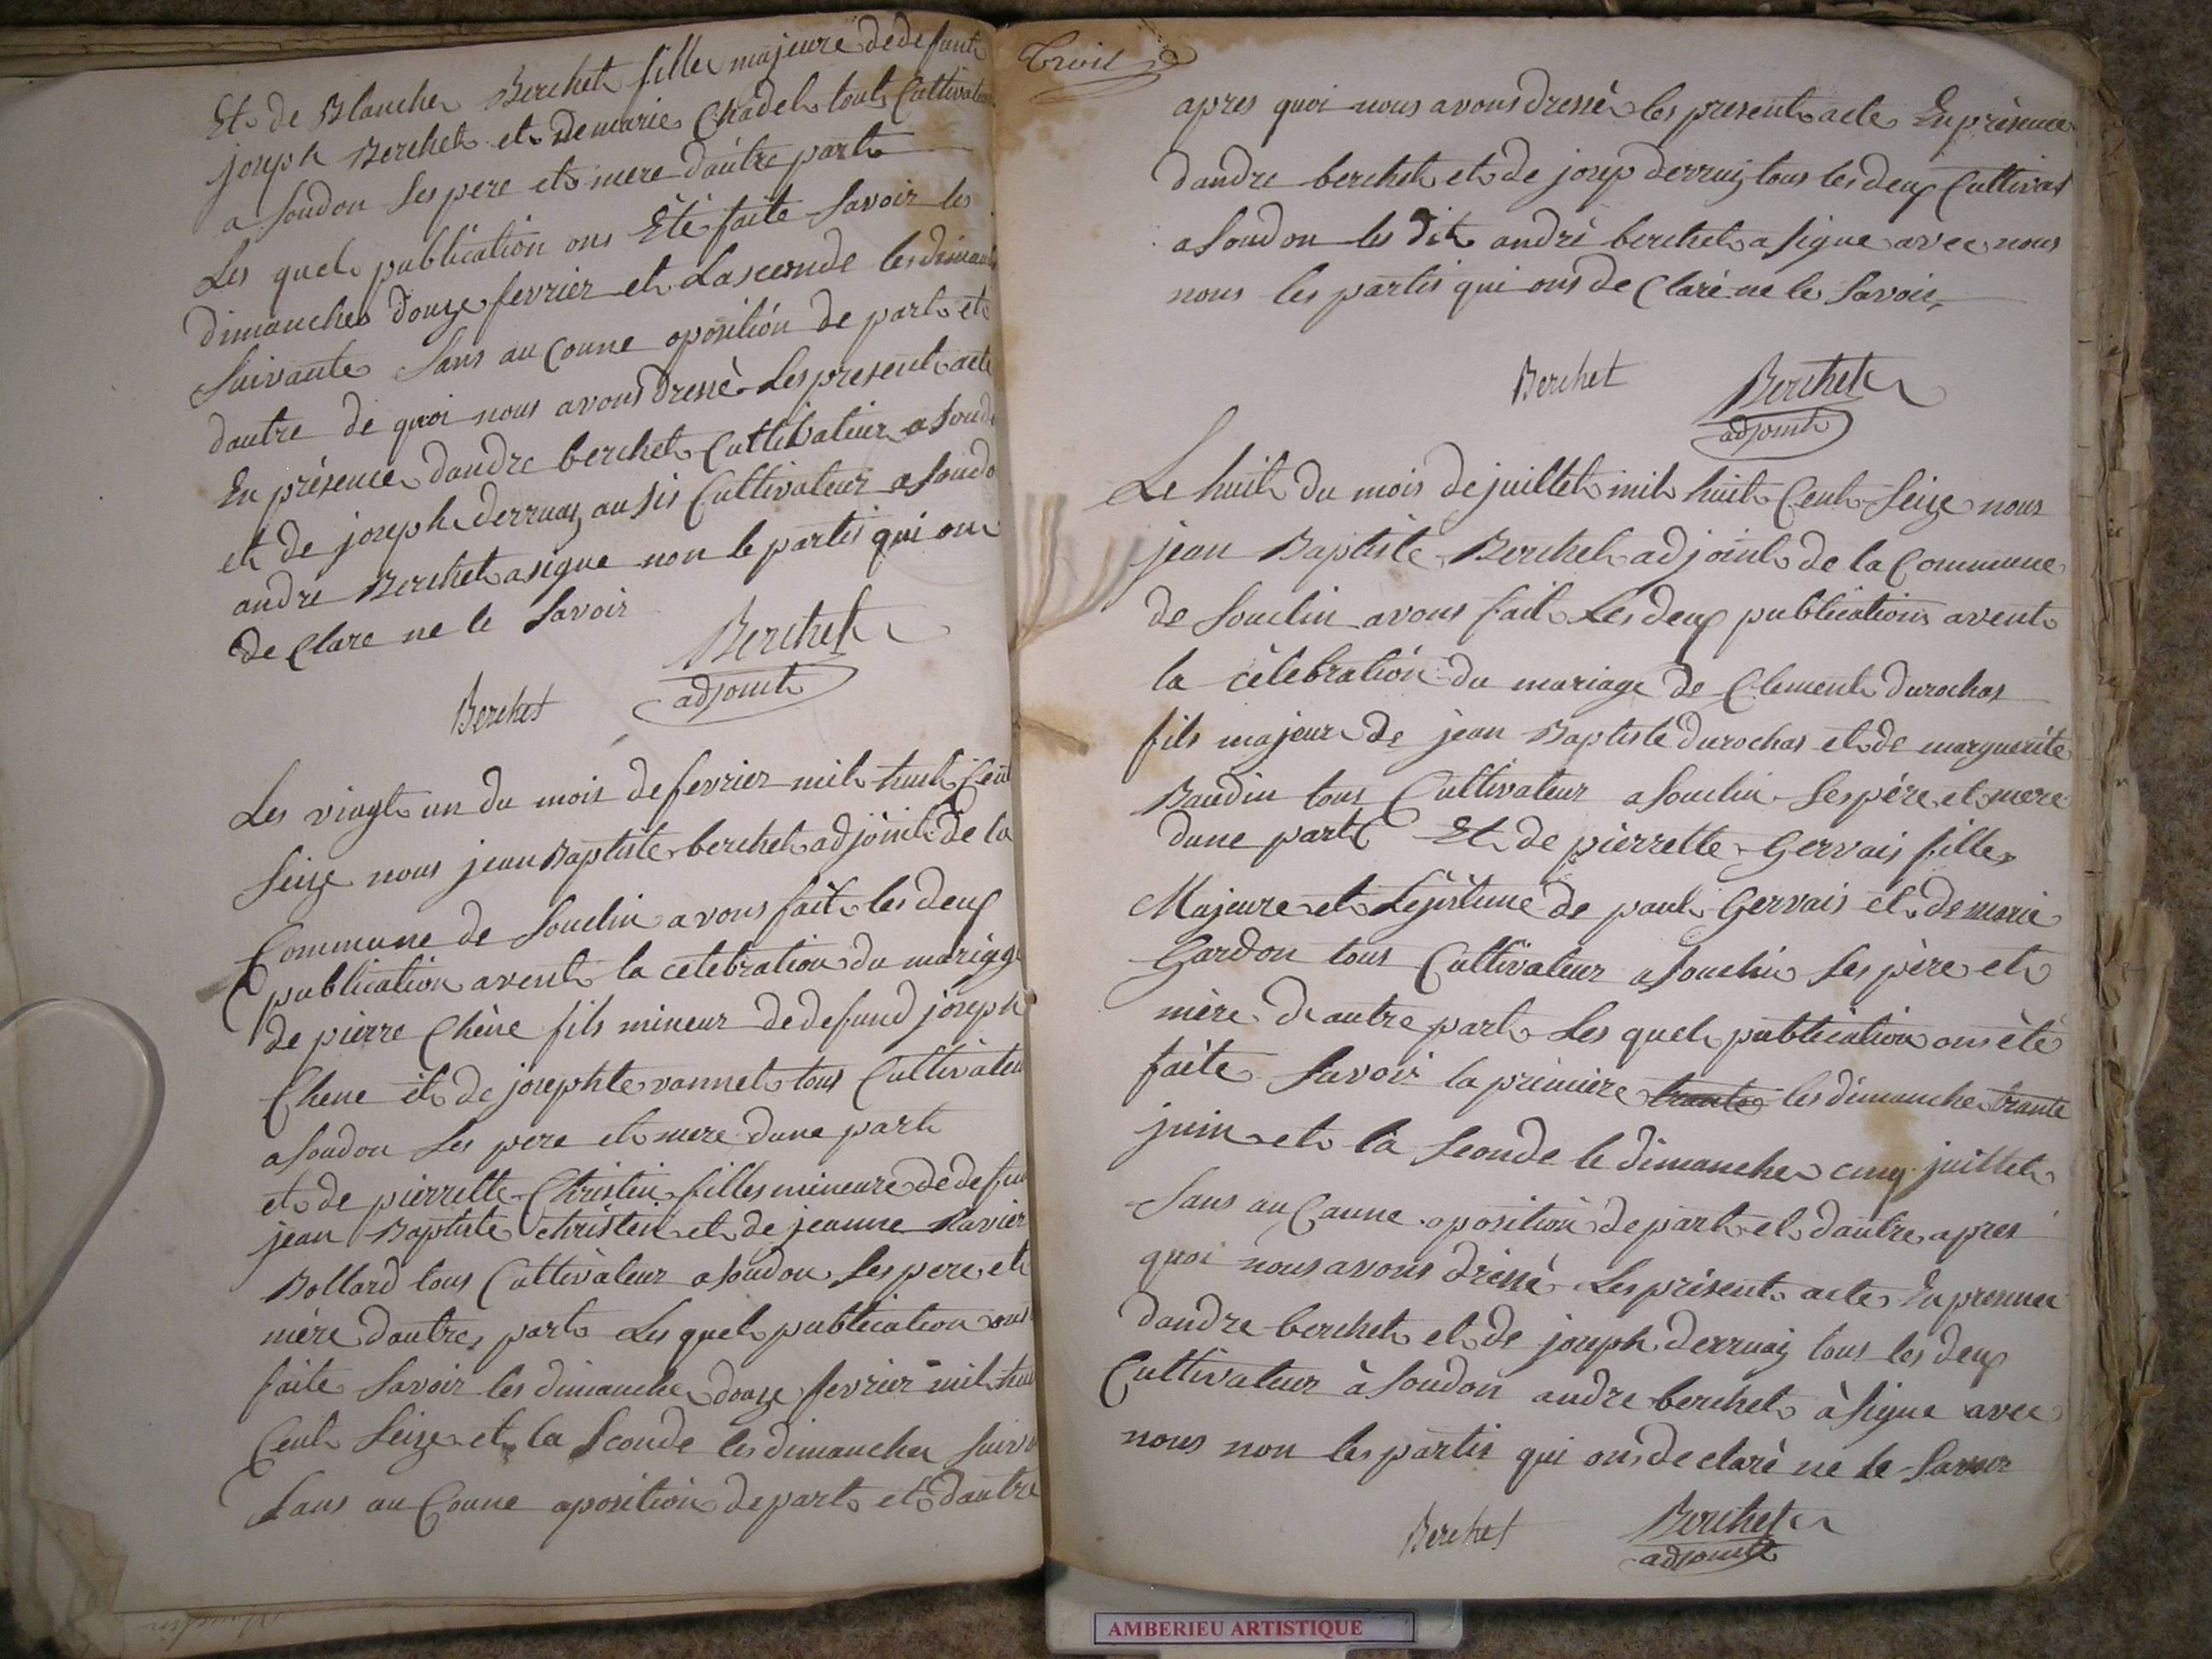 Et de Blanche Berchet fille majeure de defunt
joseph Berchet et de marie Chadel touts Cultivateur
a Soudon Ses pere et mere dautre part
Les quel publication ons Eté faite Savoir les
dimanche douze fevrier et La seconde les dimanche
Suivante Sans au Coune oposition de part et
dautre de quoi nous avons dressè Les present acte
En présence dandre berchet Cuttivateur a Soudon
et de joseph derruaz ausis Cultivateur a Soudo
andre Berchet a signe non le partis qui on
de Clare ne le Savoir
Berchet
adjoint
Berchet
Les vingt un du mois de fevrier mil huit Cent
Seize nous jean Baptiste berchet adjoint de la
Commune de Souclin avons fait les deux
publication avent la celebration du mariage
de pierre Chêne fils mineur de defund joseph
Chene et de josephte vannet tous Cultivateu
a Soudon Ses pere et mere dune part
et de pierrette Christin filles mineure de defun
jean Baptiste Christin et de jeanne Ravier
Bollard tous Cultivateur a Soudon Ses pere et
mère dautre part Les quel publication ons
faite Savoir les dimanche douze fevrier mil hui
Cent Seize et la Sconde les dimanche Suiva
Sans au Coune aposition de part et dautre
Troit
apres quoi nous avons dressè les present acte En prèsence
dandre berchet et de josep derruaz tous les deux Cultivat
a Soudon les dit andrè berchet a Signe avec nous
nous les partis qui ons de Clarè ne le Savoir
Berchet
Berchet
adjoint
Le huit du mois de juillet mil huit Cent Seize nous
jean Baptiste Berchet adjoint de la Commune
de Souclin avons fait Les deux publications avent
la cèlebration du mariage de Clement durochas
fils majeur de jean Baptiste durochas et de marguerite
Baudin tous Cultivateur a Souclin Ses père et mere
dune part Et de pierrette Gervais filles
Majeure et Legistime de paul Gervais et de marie
Gardon tous Cultivateur a Souclin Ses père et
mère de autre part Les quel publication ons èté
faite Savoir la primiere trante les dimanche trante
juin et la Seonde le dimanche cinq juillet
Sans au Caune oposition de part et dautre apres
quoi nous avons dressè Les prèsent acte En presence
dandre berchet et de joseph derruaz tous les deux
Cultivateur à Soudon andre berchet à Signe avec
nous non les partis qui ons de clarè ne le Savoir
Berchet
Berchet
adjoint
AMBERIEU ARTISTIQUE